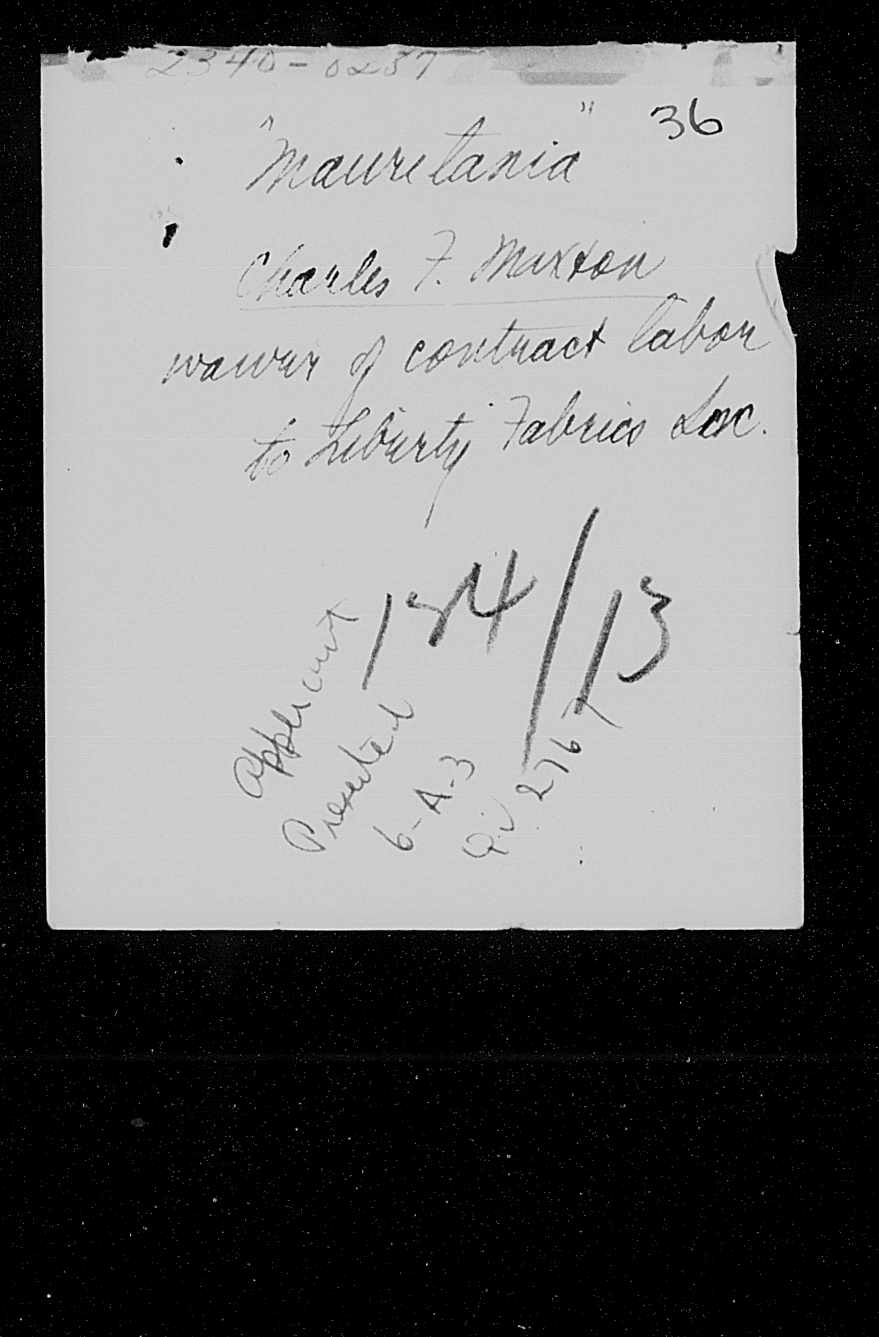 2340-0237
36
"Mauretania"
Charles F. Muxton
waiver of contract labor
to Liberty Fabrics Inc.
134/13
Applicant
Presented
6-A-3
QIV 2767